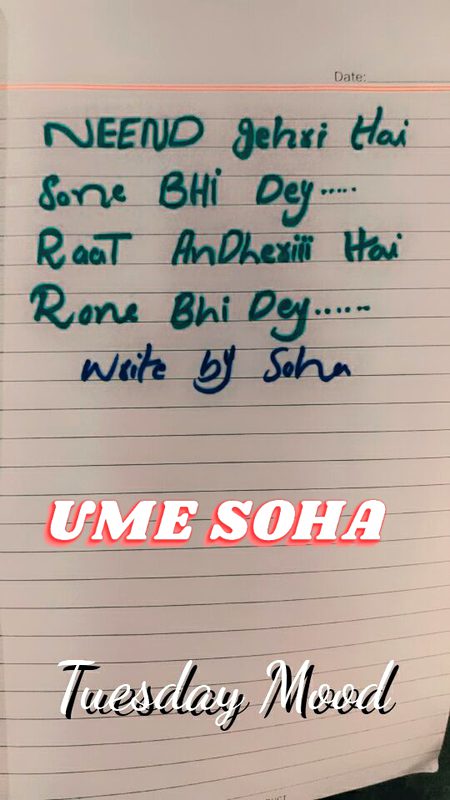 Date:
NEEND gehri Hai
Sone BHi Dey.....
RaaT AnDheriii Hai
Rone Bhi Dey......
Write by Soha
UME SOHA
Tuesday Mood